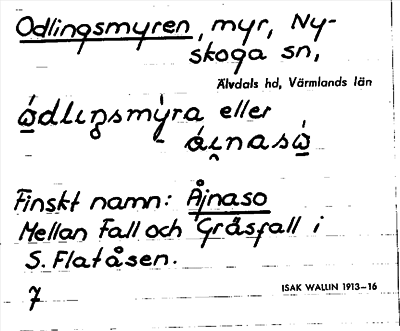 Odlingsmyren, myr, Ny-
skoga sn,
Älvdals hd, Värmlands län
eller
Finskt namn: Åjnaso
Mellan Fall och Gräsfall i
S. Flatåsen.
7
ISAK WALLIN 1913–16